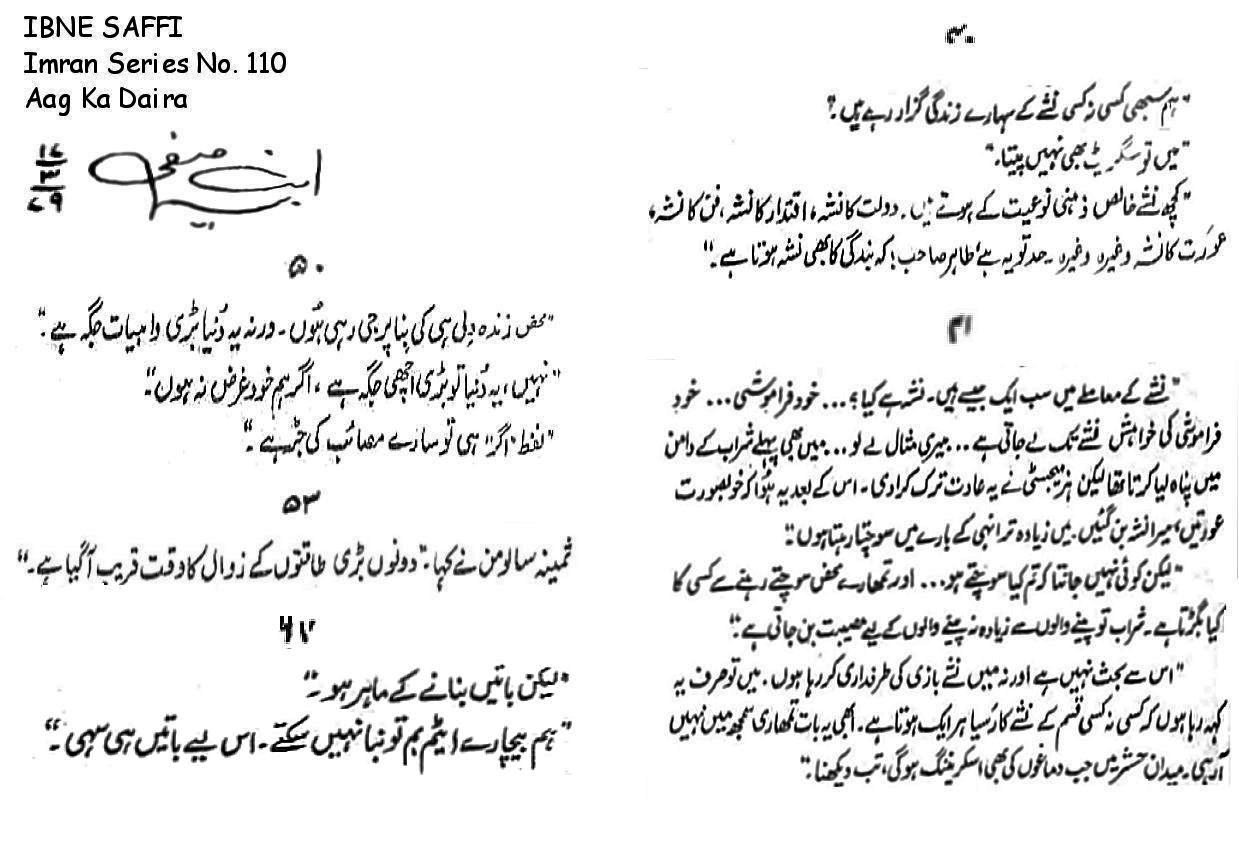 IBNE SAFFI
Imran Series No. 110
Aag Ka Daira
ابن صفی
۱۶
۳
۷۹
۵۰
"محض زندہ دلی ہی کی بنا پر جی رہی ہُوں۔ ورنہ یہ دُنیا بڑی واہیات جگہ ہے۔"
"نہیں، یہ دُنیا تو بڑی اچھی جگہ ہے، اگر ہم خود غرض نہ ہوں"۔
"لفظ "اگر" ہی تو سارے مصائب کی جڑ ہے۔"
۵۳
ثمینہ سالومن نے کہا۔ "دونوں بڑی طاقتوں کے زوال کا وقت قریب آ گیا ہے۔"
۶۷
"لیکن باتیں بنانے کے ماہر ہو۔"
"ہم بیچارے ایٹم بم تو بنا نہیں سکتے۔ اس لیے باتیں ہی سہی۔"
۴۰
"ہم سبھی کسی نہ کسی نشے کے سہارے زندگی گزار رہے ہیں۔"
"میں تو سگریٹ بھی نہیں پیتا۔"
"کچھ نشے خالص ذہنی نوعیت کے ہوتے ہیں۔ دولت کا نشہ، اقتدار کا نشہ، فن کا نشہ،
عورت کا نشہ وغیرہ وغیرہ۔ حد تو یہ ہے طاہر صاحب؛ کہ بندگی کا بھی نشہ ہوتا ہے۔"
۴۱
"نشے کے معاملے میں سب ایک جیسے ہیں۔ نشہ ہے کیا؟... خود فراموشی... خود
فراموشی کی خواہش نشے تک لے جاتی ہے... میری مثال لے لو... میں بھی پہلے شراب کے دامن
میں پناہ لیا کرتا تھا لیکن ہز میجسٹی نے یہ عادت ترک کرا دی۔ اس کے بعد یہ ہُوا کہ خوبصورت
عورتیں میرا نشہ بن گئیں۔ میں زیادہ تر انہی کے بارے میں سوچتا رہتا ہوں"۔
"لیکن کوئی نہیں جانتا کہ تم کیا سوچتے ہو... اور تمھارے محض سوچتے رہنے سے کسی کا
کیا بگڑتا ہے۔ شراب تو پینے والوں سے زیادہ نہ پینے والوں کے لیے مصیبت بن جاتی ہے۔"
"اس سے بحث نہیں ہے اور نہ میں نشے بازی کی طرفداری کر رہا ہوں۔ میں تو صرف یہ
کہہ رہا ہوں کہ کسی نہ کسی قسم کے نشے کا رَسیا ہر ایک ہوتا ہے۔ ابھی یہ بات تمھاری سمجھ میں نہیں
آ رہی۔ میدان حشر میں جب دماغوں کی بھی اسکریننگ ہوگی، تب دیکھنا۔"